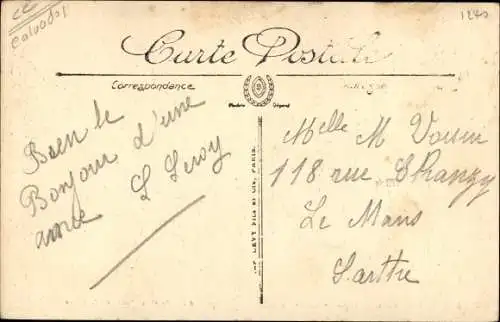 Calvados
1240
Carte Postale
Correspondance
Adresse
Modèle Déposé
Bien le
Bonjour d'une
amie L Leroy
IMP. LEVY FILS ET CIE, PARIS.
Melle M Voisin
118 rue
Le Mans
Sarthe